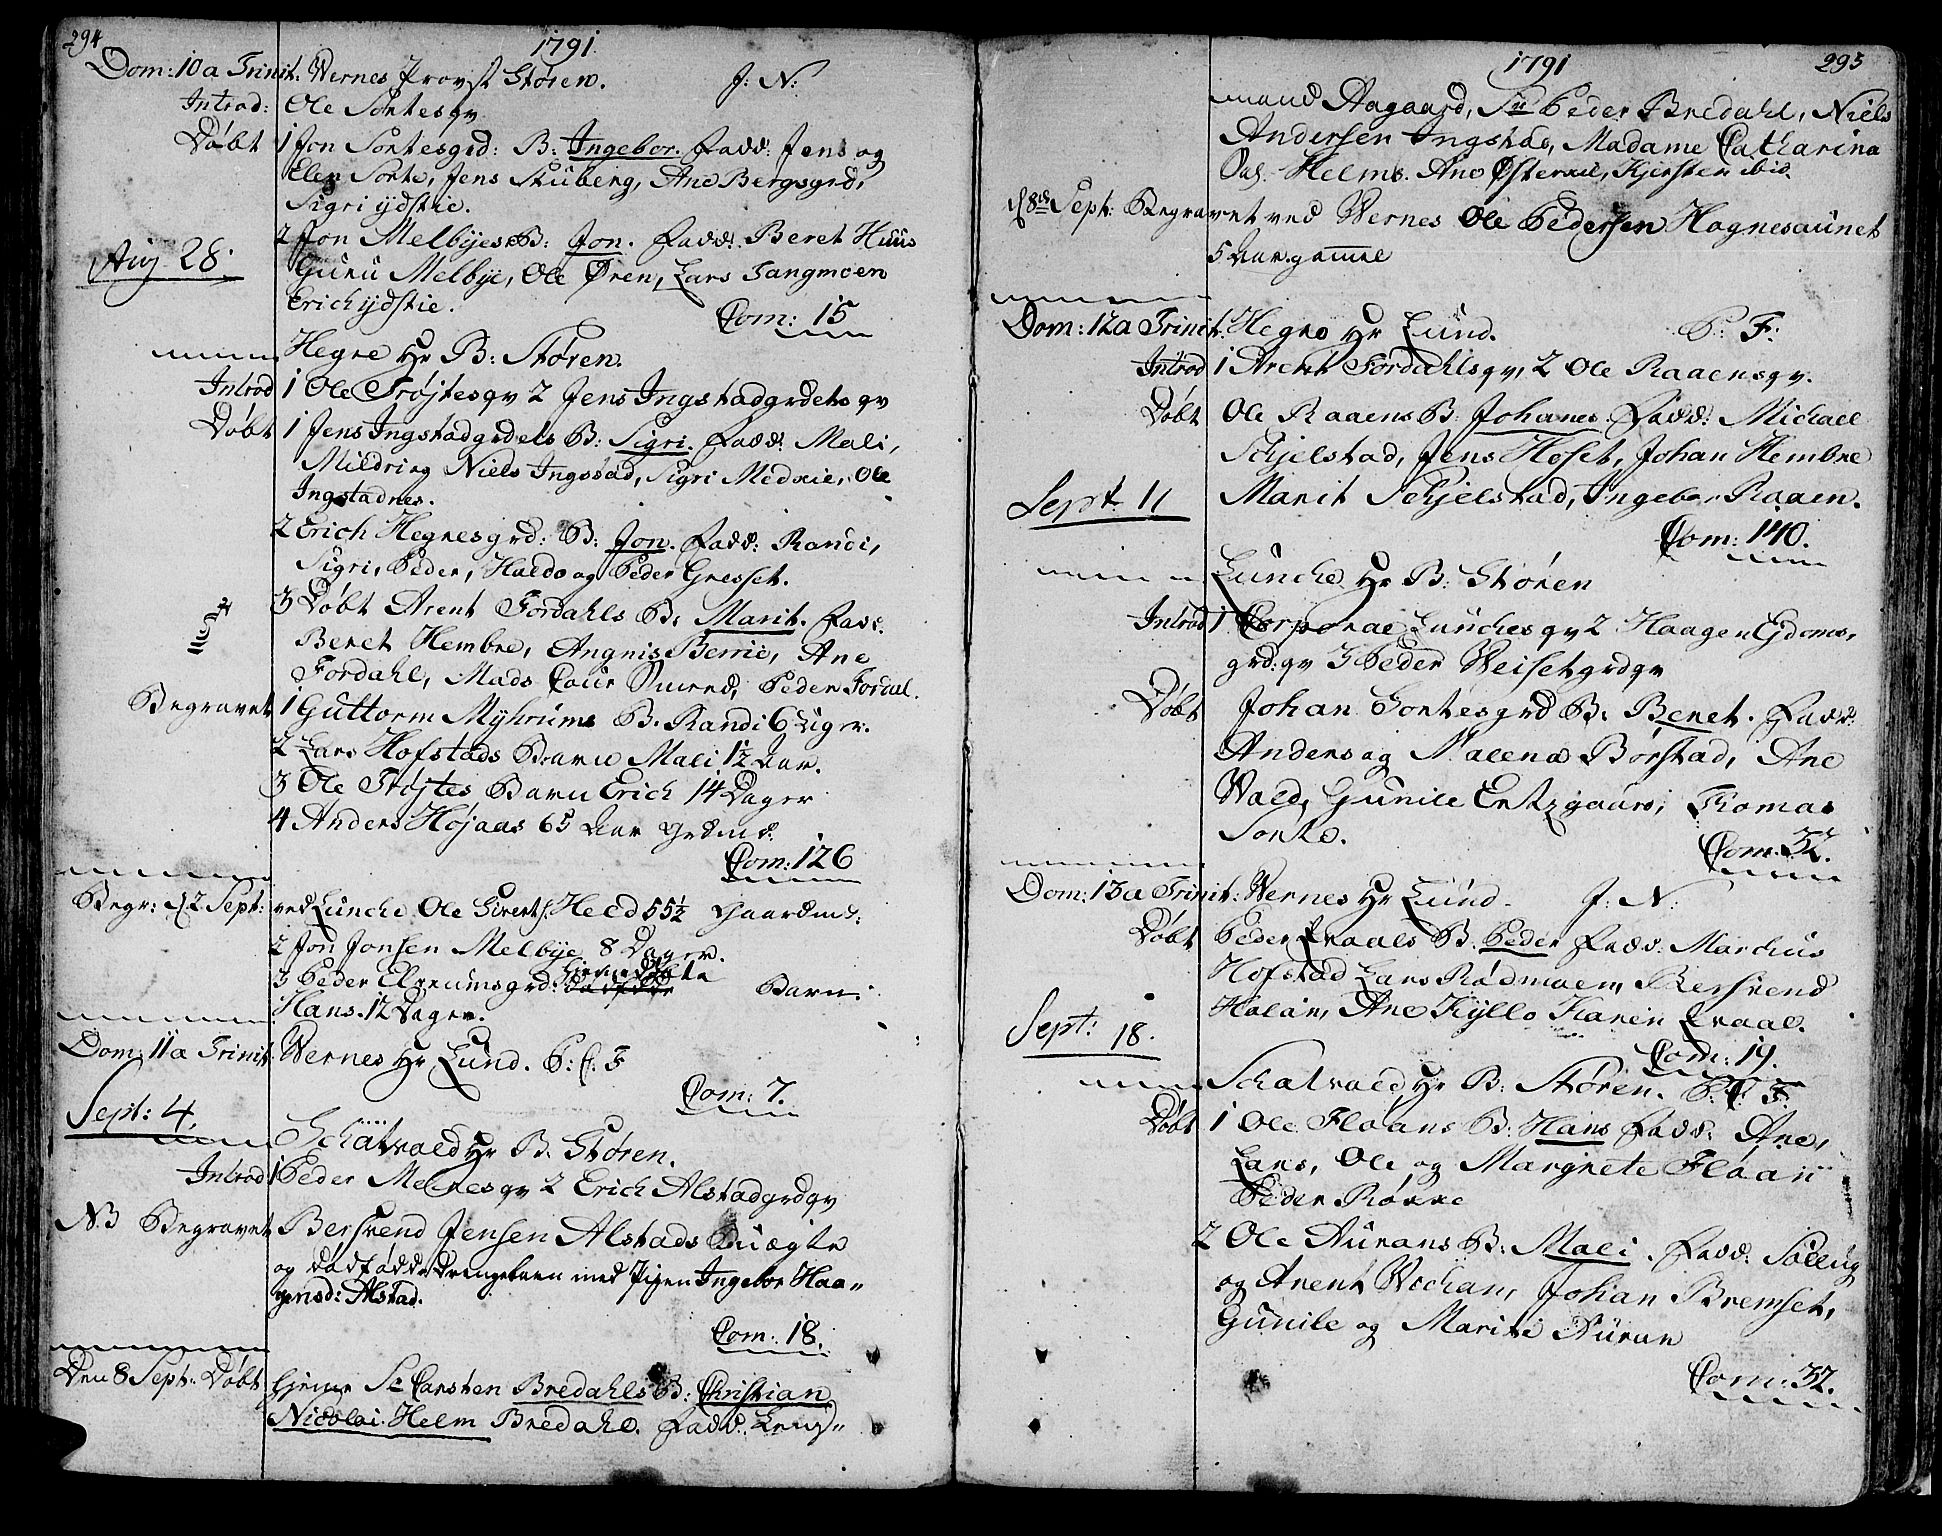 294
1791.
Dom: 10 a Trinit: Wernes Provst Stören. J: N:
Introd: Ole Sortesqv
Döbt 1 Jon Sortesgrd: B: Ingebor. Fadd: Jens og
Elen Sorte, Jens Stuberg, Ane Bergsgrd,
Sigri ydstie.
2 Jon Melbyes B: Jon. Fadd: Beret Huus
Aug 28. Guru Melbye, Ole Ören, Lars Tangmoen
Erich ydstie.
Com: 15
Hegre Hr B: Stören.
Introd 1 Ole Tröjtesqv 2 Jens Ingstadgrdets qv
Döbt 1 Jens Ingstadgrdets B: Sigri. Fadd: Mali,
Mildri og Niels Ingstad, Sigri Medvie, Ole
Ingstadnes.
2 Erich Hegresgrd: B: Jon. Fadd: Randi,
Sigri, Peder, Haldo og Peder Gresset.
3 Döbt Arent Fordahls B: Marit. Fadd.
Beret Hembre, Angnis Berrie, Ane
Fordahl, Mads Peder Fordal.
Begravet 1 Guttorm Myhrums B. Randi 6 Uger.
2 Lars Hofstads Barn Mali 1½ Aar.
3 Ole Tröjtes Barn Erich 14 Dager
4 Anders Höjaas 65 Aar grdmd.
Com: 126
Begr: d 2 Sept: ved Lunche Ole Sivertss: Held 55½ Gaardmd:
2 Jon Jonsen Melbye 8 Dager.
3 Peder Elverumsgrd: Hiemedöbte Barn
Hans. 12 Dager.
Dom: 11 a Trinit: Wernes Hr Lund. P: C: F
Com: 7.
Sept: 4.
Schatvold Hr B. Stören.
Introd 1 Peder Mehresqv 2 Erich Alstadgrdqv
NB Begravet Bersvend Jensen Alstads Uægte
og dödfödde Drengebarn med Pigen Ingebor Haa-
gensd: Alstad.
Com: 18.
Den 8 Sept: Döbt hjemme Sr Carsten Bredahls B: Christian
Nicolai Helm Bredahl. Fadd: Leng-
1791
295
mand Aagaard, Sr Peder Bredahl, Niels
Andersen Ingstad, Madame Catharina
Sal. Helms. Ane Östervie, Kjersten ibid.
d 8de Sept: Begravet ved Wernes Ole Pedersen Hognesaunet
5 Aar gamel
Dom: 12 a Trinit. Hegre Hr Lund. P: F:
Introd 1 Arent Fordahlsqv, 2 Ole Raaensqv.
Döbt Ole Raaens B: Johanes. Fadd: Michael
Schjelstad, Jens Höset, Johan Hembre
Sept 11 Marit Schjelstad, Ingebor Raaen.
Com: 140.
Lunche Hr B: Stören
Introd 1 Corporal Lunchesqv 2 Haagen Ejdoms,
grd: qv 3 Peder Weisetgrdqv
Döbt Johan Sortesgrd B: Beret. Fadd:
Anders og Malena Börstad, Ane
Wald, Gunile Ertzgaard, Thomas
Sorte.
Com: 32.
Dom: 13 a Trinit: Wernes Hr Lund. J: N:
Döbt Peder Qvaals B. Peder Fadd. Marchus
Hofstad Lars Rödmoen, Bersvend
Halan, Ane Kyllo Karen Qvaal.
Sept: 18.
Com: 19.
Schatvold Hr B: Stören. P: C: F:
Döbt 1 Ole Floans B: Hans Fadd: Ane,
Lars, Ole og Margrete Floan
Peder Röcke
2 Ole Aurans B: Mali. Fadd: Solleug
og Arent Wichan, Johan Bremset,
Gunile og Marite Auran
Com: 32.